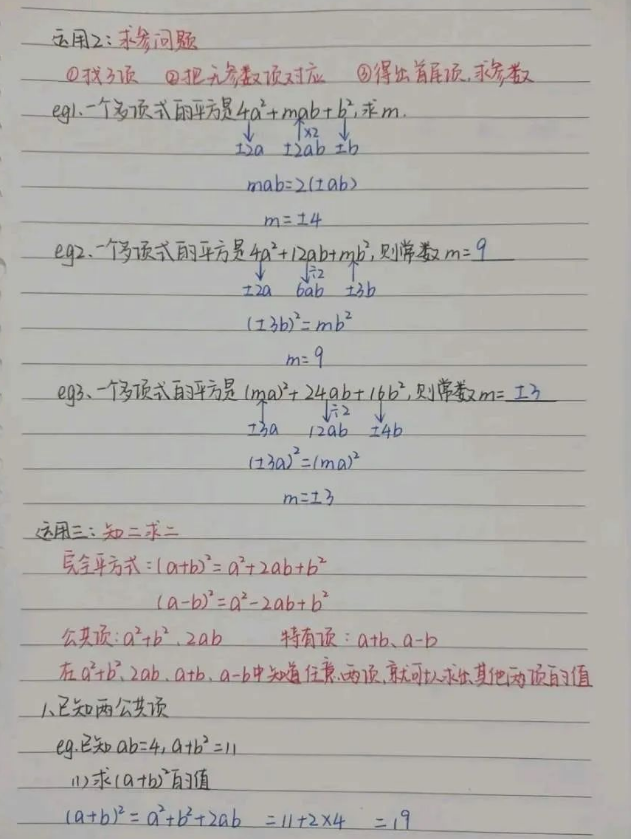 运用2:求参问题
①找3项 ②把无参数项对应 ③得出首尾项,求参数
eg1.一个多项式的平方是4a²+mab+b²,求m.
×2
±2a ±2ab ±b
mab=2(±ab)
m=±4
eg2.一个多项式的平方是4a²+12ab+mb²,则常数m=9
÷2
±2a 6ab ±3b
(±3b)²=mb²
m=9
eg3、一个多项式的平方是(ma)²+24ab+16b²,则常数m=±3
÷2
±3a 12ab ±4b
(±3a)²=(ma)²
m=±3
运用三:知二求二
完全平方式:(a+b)²=a²+2ab+b²
(a-b)²=a²-2ab+b²
公共项:a²+b²、2ab 特有项:a+b、a-b
在a²+b²、2ab、a+b、a-b中知道任意两项,就可以求出其他两项的值
1、已知两公共项
eg.已知ab=4,a+b²=11
(1)求(a+b)²的值
(a+b)²=a²+b²+2ab =11+2×4 =19